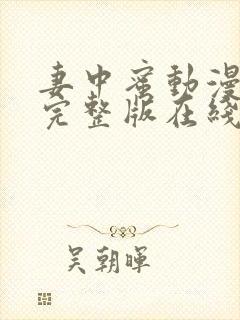 妻中蜜動漫
完整版在綫
吴朝暉